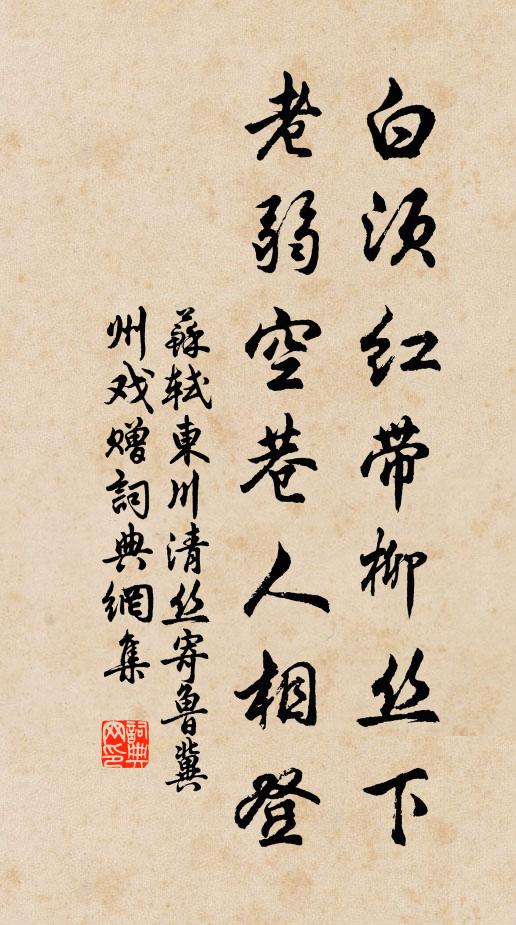 白须红带柳丝下
老弱空巷人相登
蘇軾東川清丝寄魯冀
州戏赠詞典網集
詞典
网印